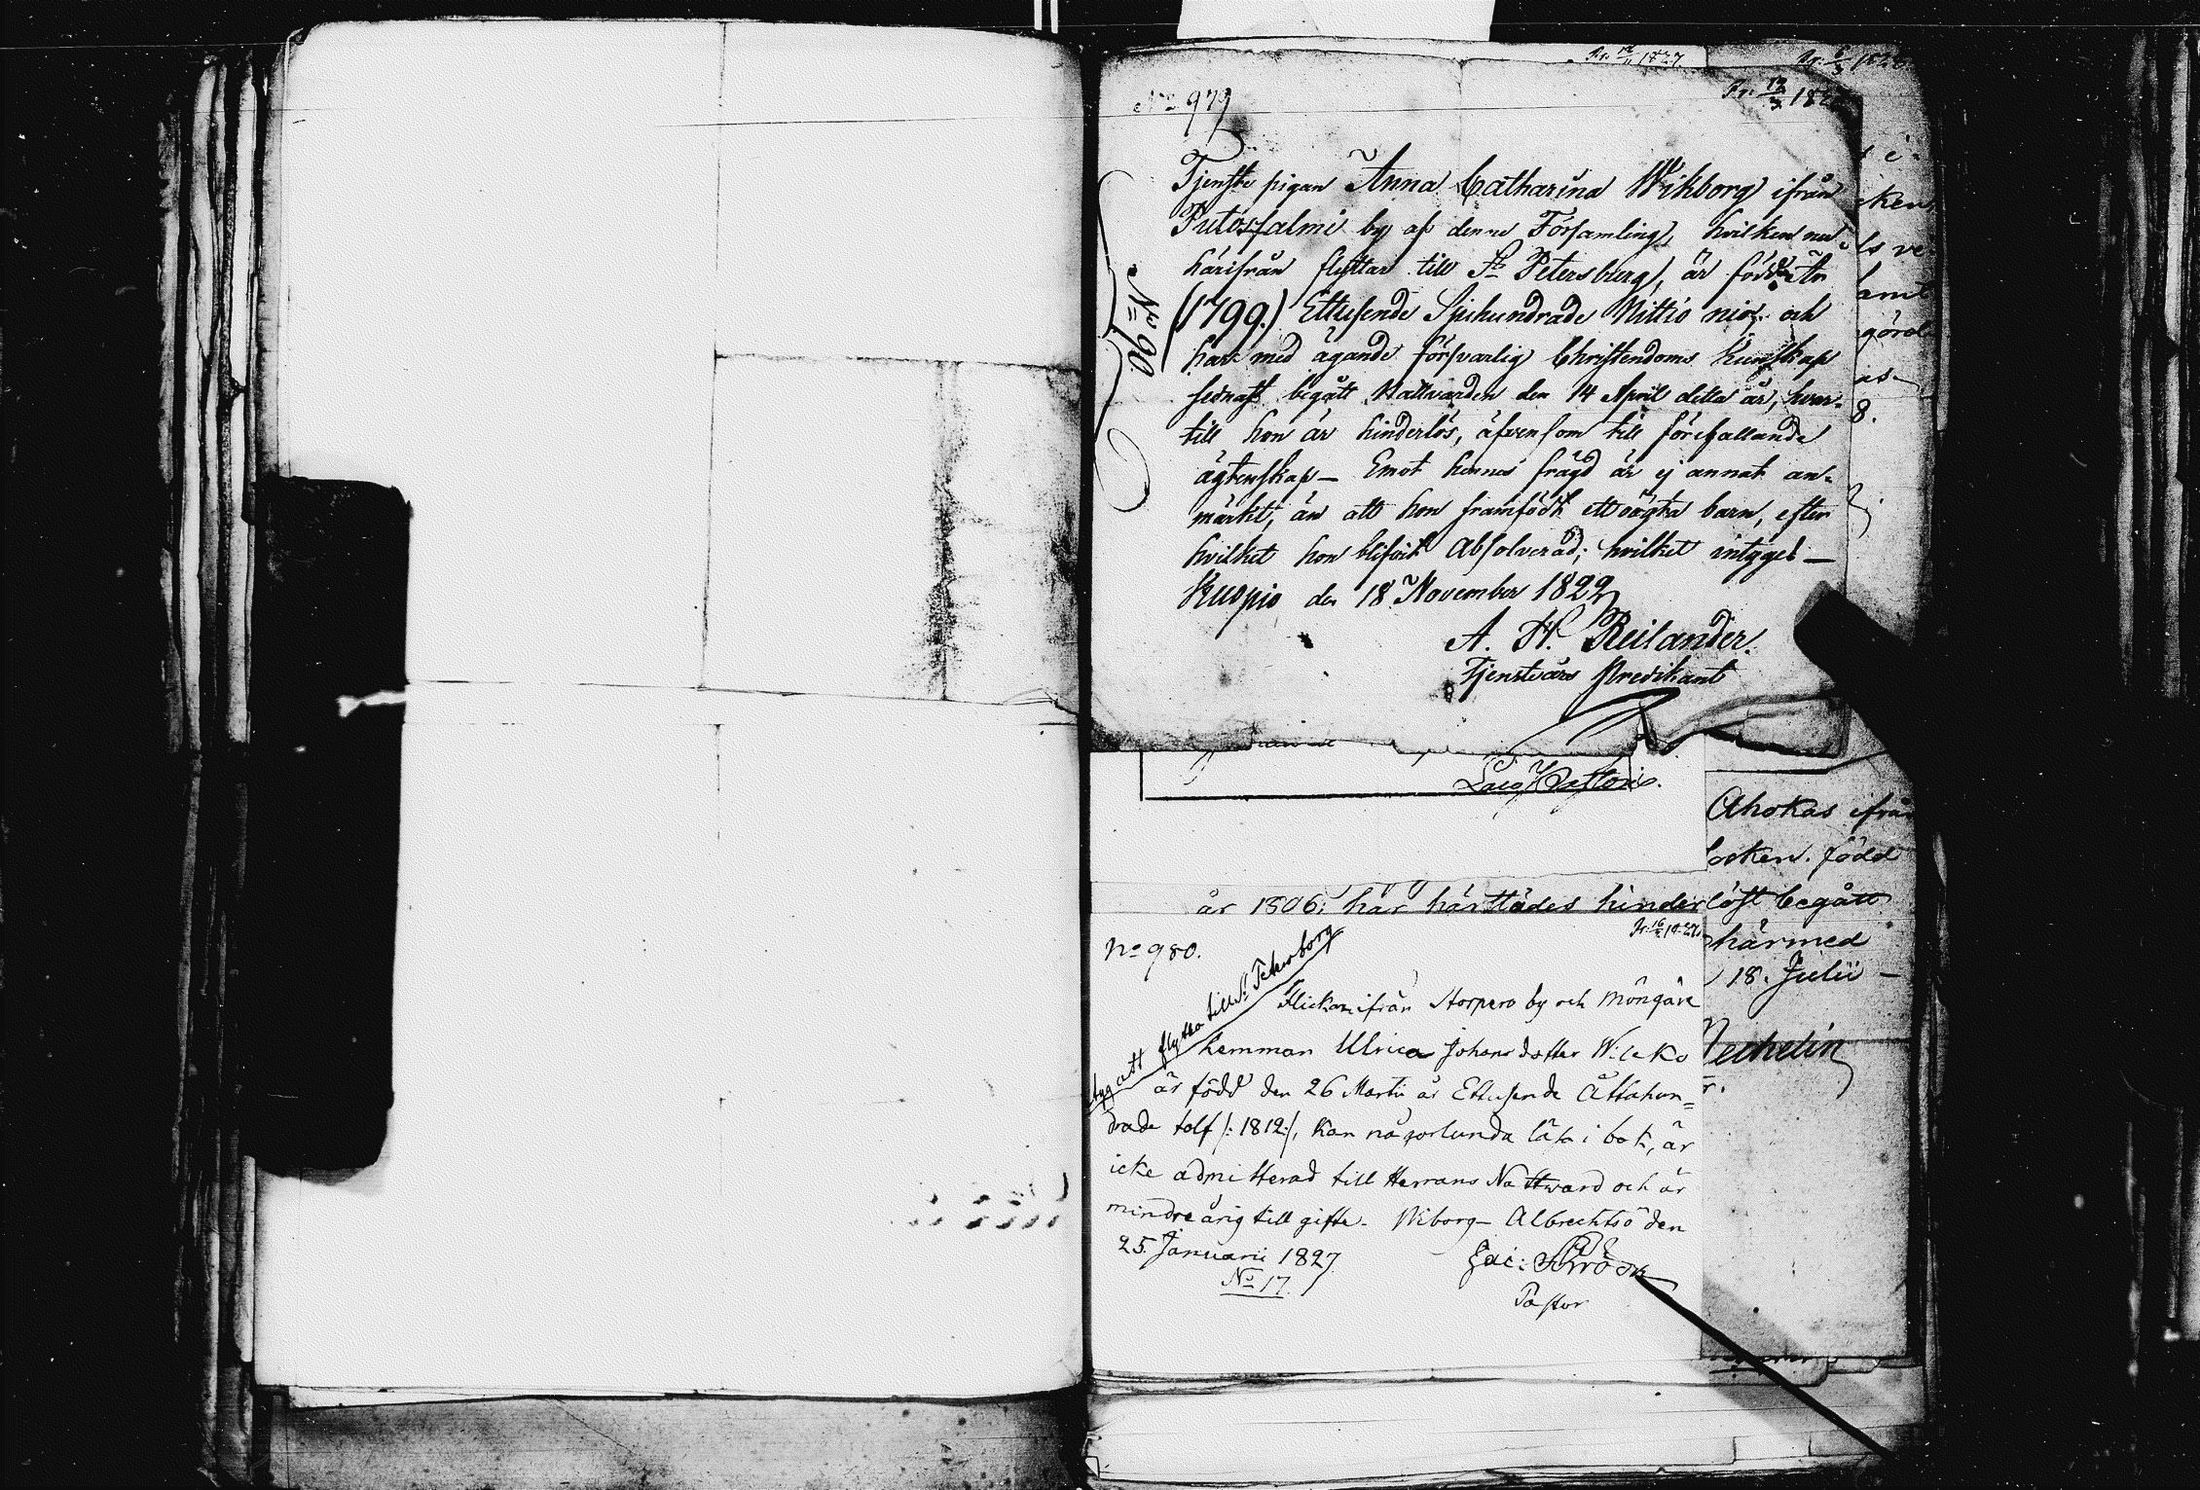 Pr. 12/11 1827
Pr. 6/3 182
No 979
Pr. 12/3 182
Tjenste pigan Anna Catharina Wikborg ifrån
Putosjalmi by af denna Församling, hvilken nu
härifrån flyttar till St Petersburg, är född år
(1799.) Ettusende Sjuhundrade Nittio nio, och
har med ägande försvarlig Christendoms kunskap
sednast begått Nattvarden den 14 April detta år, hvar-
till hon är hinderlös, äfvensom till förefallande
ägtenskap — Emot hennes frägd är ej annat an-
märkt, än att hon framfödt ett oägta barn, efter
hvilket hon blifvit Absolverad; hvilket intygas —
Kuopio den 18 November 1822
A. H. Reilander.
Tjenstvårs Predikant
No 90.
Loco Pastoris.
Ahokas ifrån
socken. född
år 1806; har härstädes hinderlöst begått
härmed
18. Julii —
Mechelin
No 980.
Pr. 16/2 1827
att flytta till St. Petersborg
Flickan ifrån Horpero by och Möngäre
hemman Ulrica Johansdotter Wilcko
är född den 26 Martii år Ettusende Åttahun=
drade tolf /: 1812:/, kan någorlunda läsa i bok, är
icke admitterad till Herrans Nattward och är
mindreårig till gifte. Wiborg – Albrechtsö den
25. Januarii 1827
No 17.
Pastor